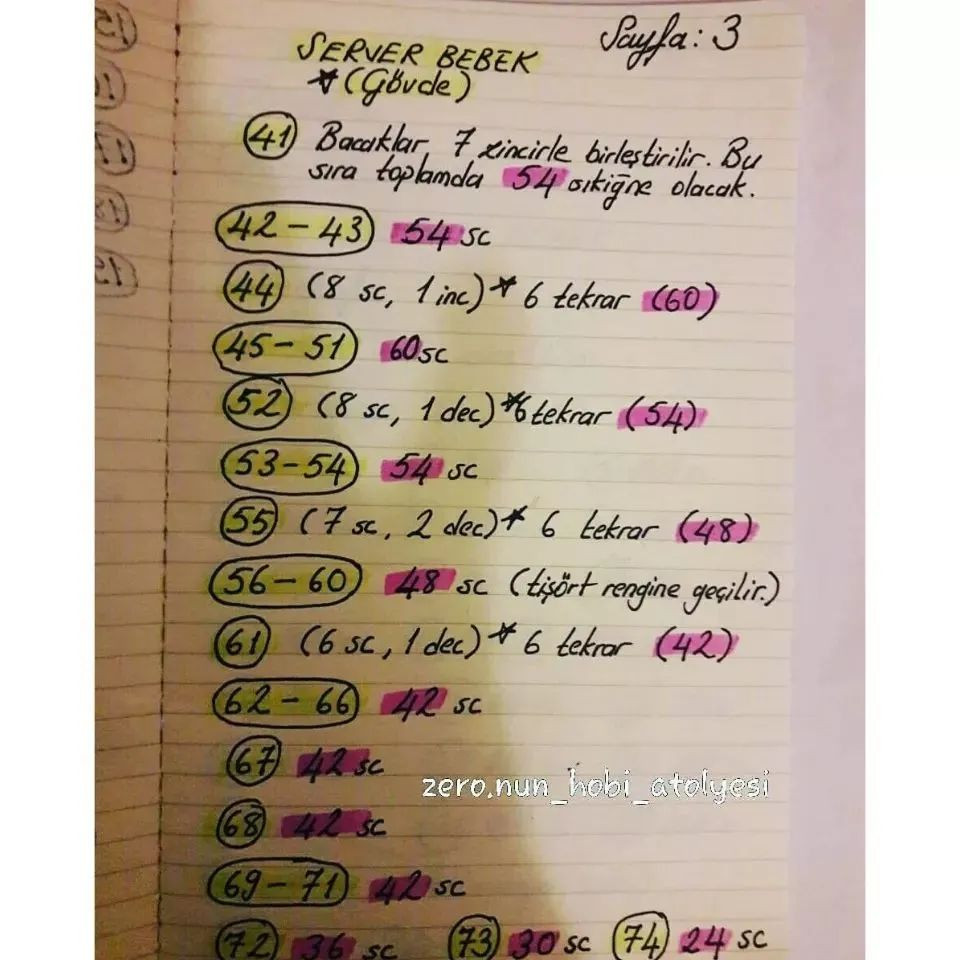 Sayfa: 3
SERVER BEBEK
★(Gövde)
41 Bacaklar 7 zincirle birleştirilir. Bu
sıra toplamda 54 sıkiğne olacak.
42 - 43 54 sc
44 (8 sc, 1 inc)* 6 tekrar (60)
45 - 51 60sc
52 (8 sc, 1 dec)*6 tekrar (54)
53-54 54 sc
55 (7 sc, 2 dec)* 6 tekrar (48)
56-60 48 sc (tişört rengine geçilir.)
61 (6 sc, 1 dec)* 6 tekrar (42)
62 - 66 42 sc
67 42 sc
zero.nun_hobi_atolyesi
68 42 sc
69 - 71 42 sc
72 36 sc 73 30 sc 74 24 sc
15
17
18
19